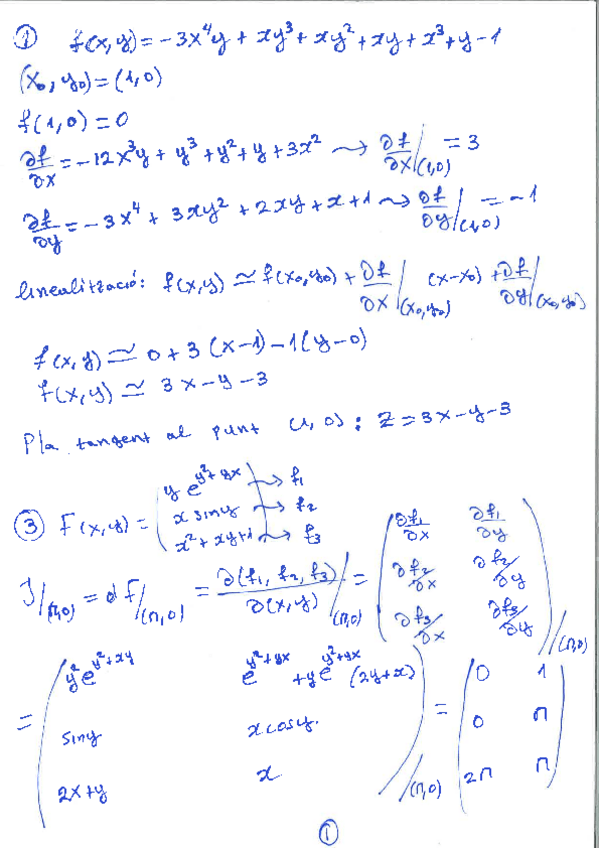 ① f(x,y) = -3x⁴y + xy³ + xy² + xy + x³ + y - 1
(x₀, y₀) = (1,0)
f(1,0) = 0
∂f/∂x = -12x³y + y³ + y² + y + 3x² ⤳ ∂f/∂x|(1,0) = 3
∂f/∂y = -3x⁴ + 3xy² + 2xy + x + 1 ⤳ ∂f/∂y|(1,0) = -1
linealització: f(x,y) ≃ f(x₀,y₀) + ∂f/∂x|(x₀,y₀) (x-x₀) + ∂f/∂y|(x₀,y₀)
f(x,y) ≃ 0 + 3(x-1) - 1(y-0)
f(x,y) ≃ 3x - y - 3
Pla tangent al punt (1,0): z = 3x - y - 3
③ F(x,y) = ( y e^(y²+yx) → f₁
x sin y → f₂
x² + xy + 1 → f₃ )
J|(π,0) = dF|(π,0) = ∂(f₁, f₂, f₃)/∂(x,y) |(π,0) = ( ∂f₁/∂x ∂f₁/∂y
∂f₂/∂x ∂f₂/∂y
∂f₃/∂x ∂f₃/∂y )|(π,0)
= ( y² e^(y²+xy) e^(y²+yx) + y e^(y²+yx) (2y+x)
sin y x cos y.
2x+y x )|(π,0) = ( 0 1
0 π
2π π )
①